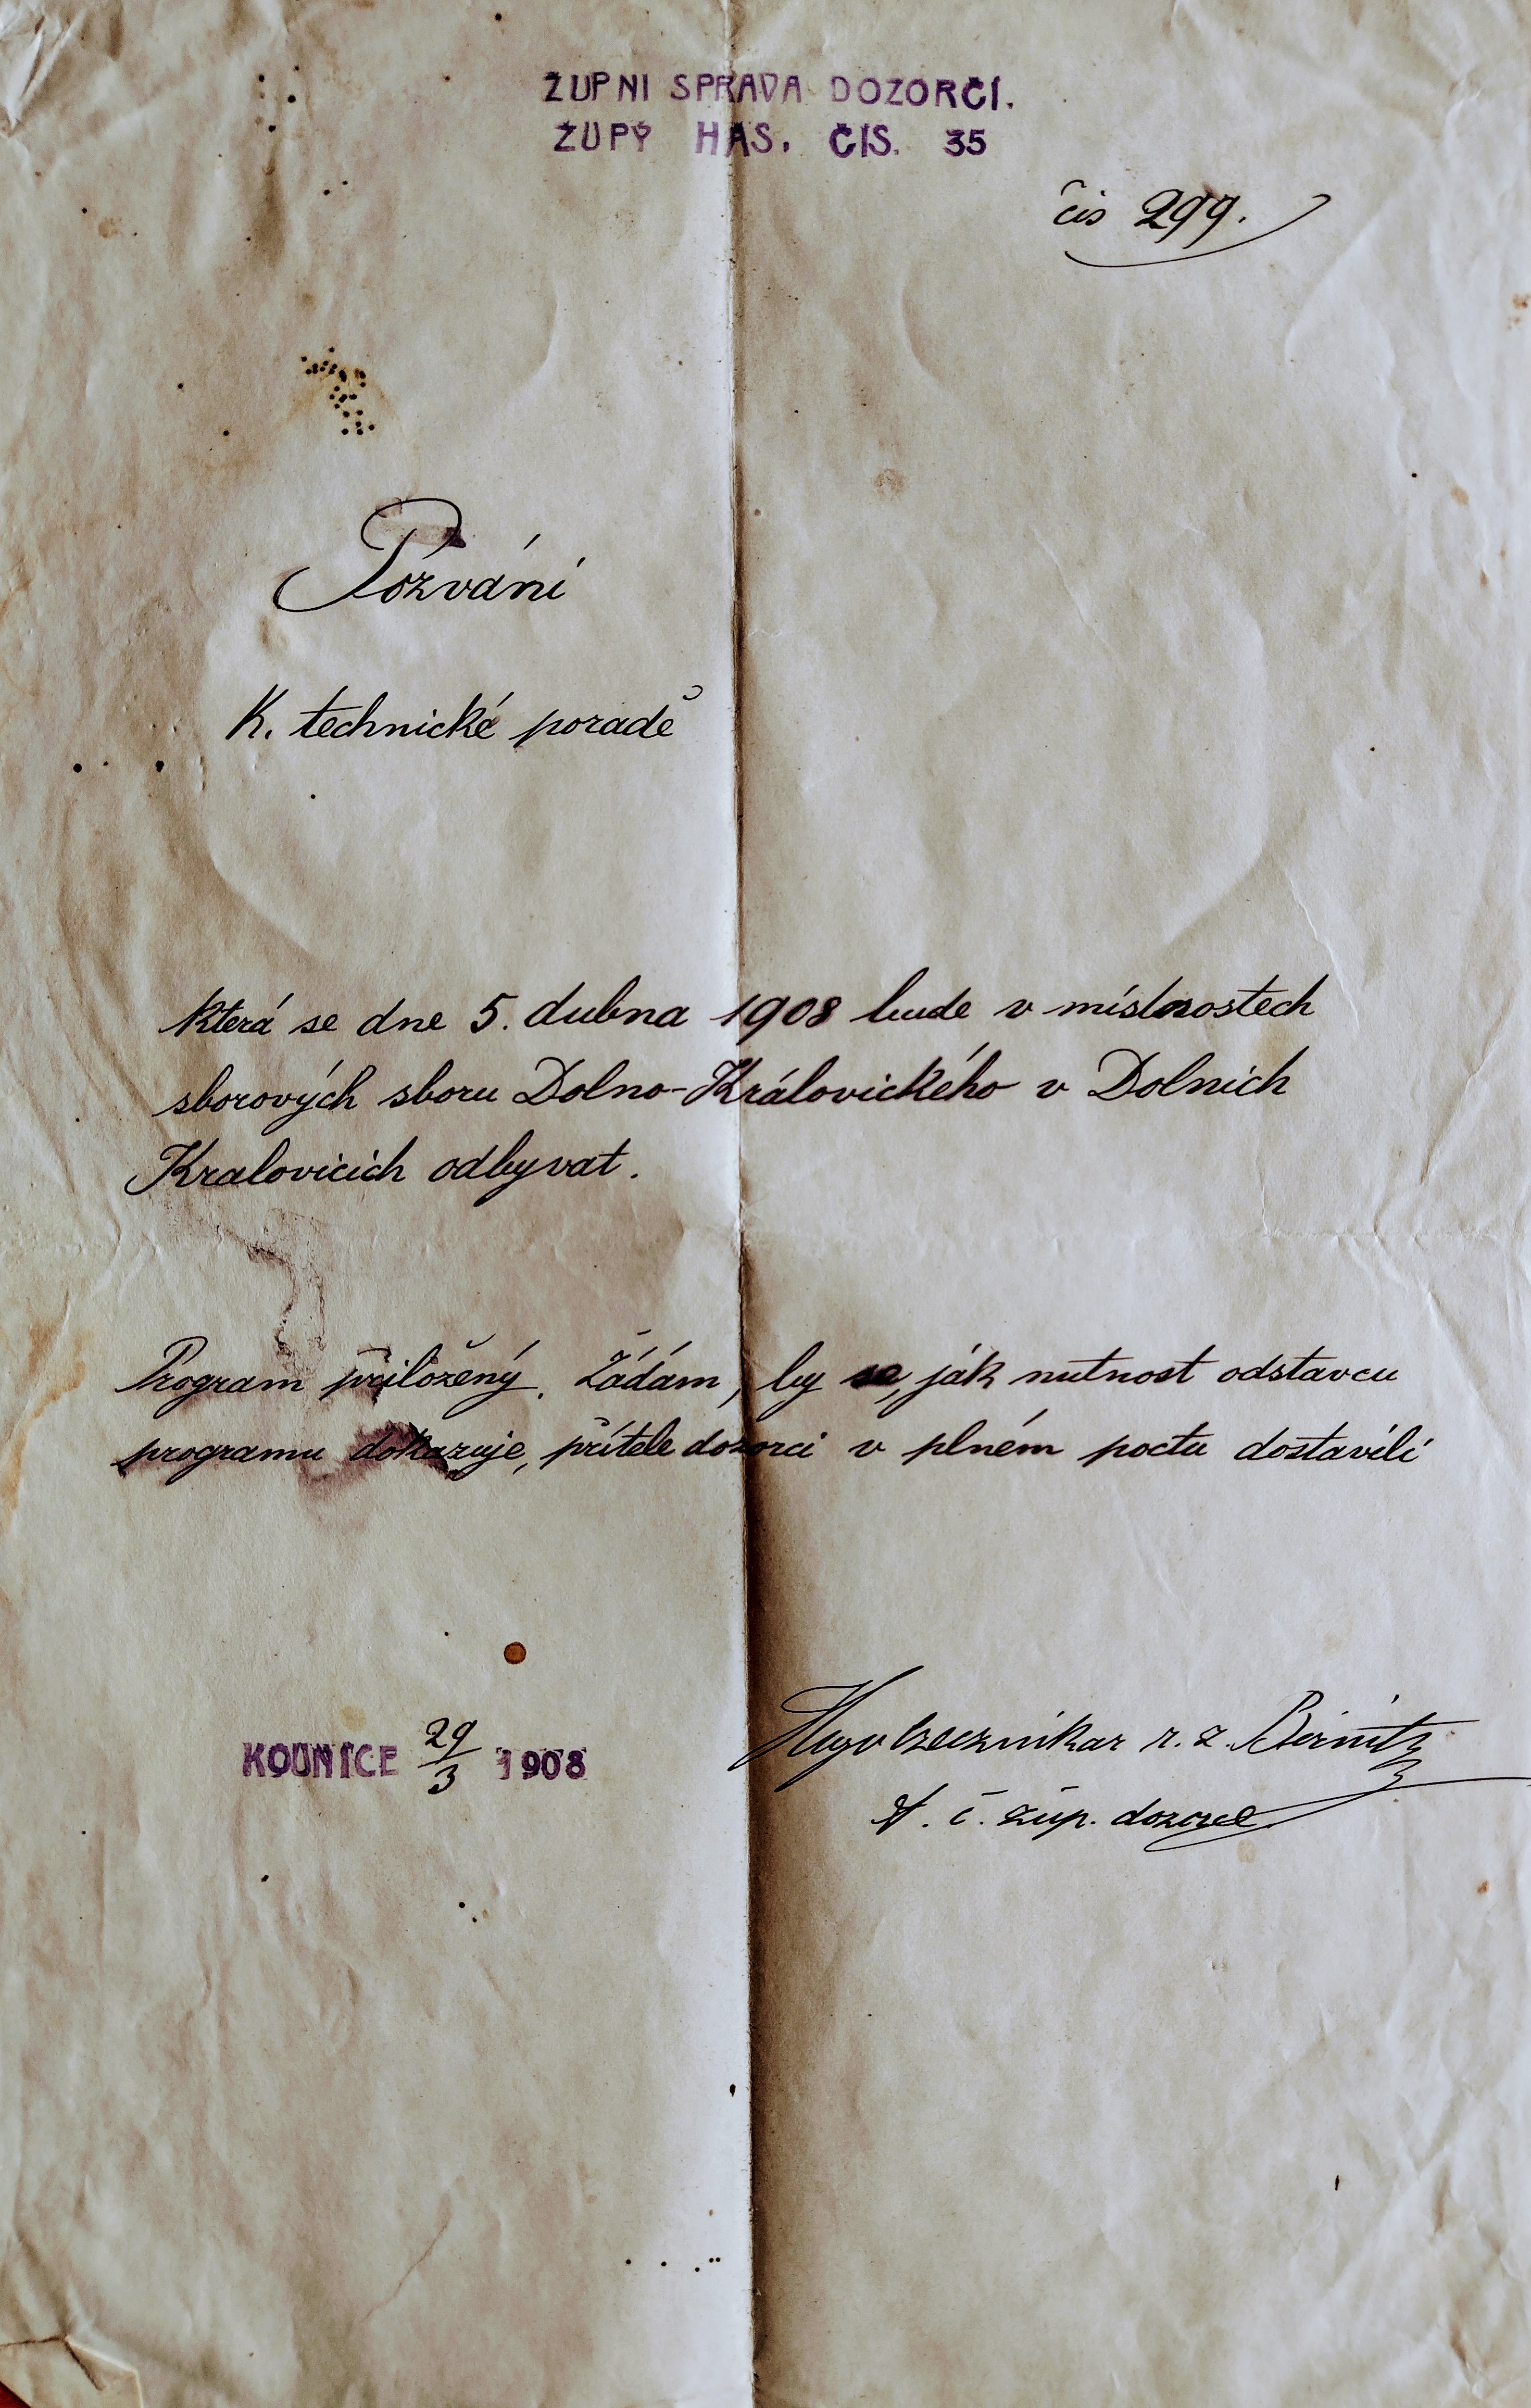 ŽUPNI SPRAVA DOZORČÍ.
ŽUPY HAS. ČIS. 35
čis 299.
Pozvání
K. technické poradě
která se dne 5. dubna 1908 bude v místnostech
sborových sboru Dolno-Královického v Dolnich
Kralovicich odbyvat.
Program přiložený. Žádám, by se, ják nutnost odstavcu
programu dokazuje, přítele dozorci v plném poctu dostavili
KOUNICE 29/3 1908
Hugo r. z. Birnitz
t. č. žup. dozorce